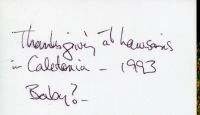 Thanksgiving at Lawsons
in Caledonia - 1993
Baby? -